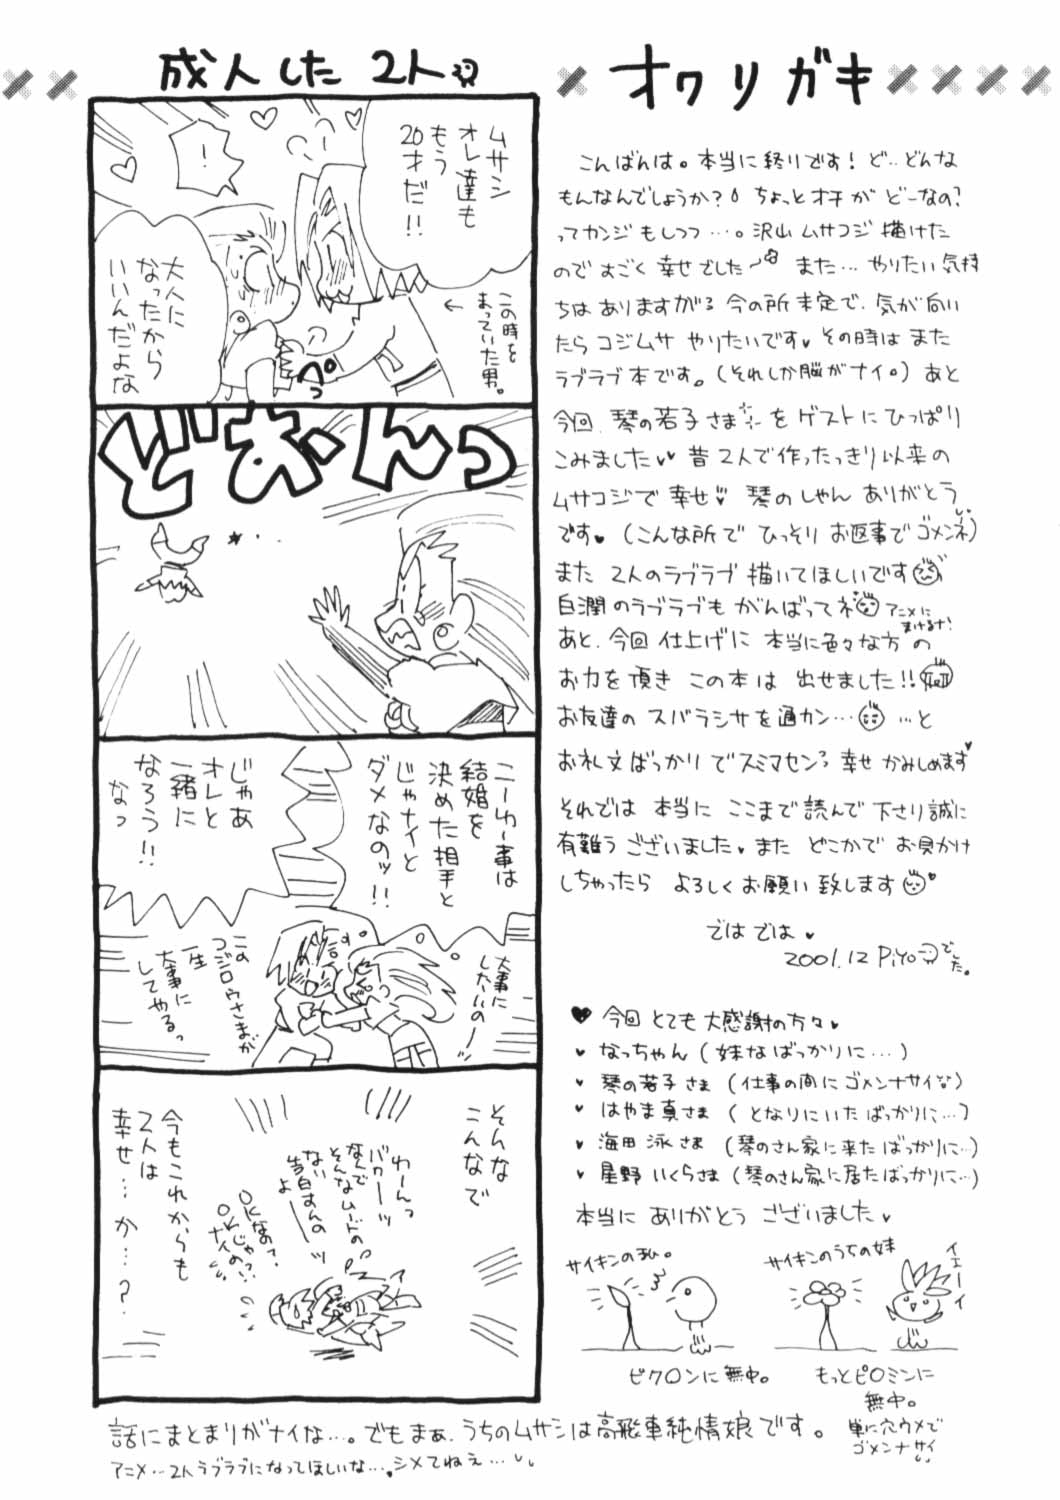 成人した 2人
ムサシ
オレ達も
もう
20才だ!!
!
大人に
なったから
いいんだよな
この時を
まっていた男。
ぺっ
どおーんっ
こーゆー事は
結婚を
決めた相手と
じゃナイと
ダメなのッ!!
じゃあ
オレと
一緒に
なろう!!
なっ
大事に
したいのー
この
コジロウさまが
一生
大事に
してやるっ
そんな
こんなで
わーんっ
バカーッ
なんで
そんなムードの
ない告白すんの
よーッ
OKなの?
OKじゃ
ナイの!?
今もこれからも
2人は
幸せ…か…?
話にまとまりがナイな…。でもまぁ、うちのムサシは高飛車純情娘です。
アニメ…2人ラブラブになってほしいな…。シメてねえ…
オワリガキ
こんばんは。本当に終りです! ど…どんな
もんなんでしょうか? ちょっとオチが どーなの?
ってカンジもしつつ…。沢山 ムサコジ 描けた
のですごく幸せでした また… やりたい気持
ちはありますがる 今の所未定で、気が向い
たら コジムサ やりたいです♥ その時は また
ラブラブ本です。(それしか脳がナイ。) あと
今回、琴の若子さま をゲストにひっぱり
こみました♥♥ 昔2人で作ったっきり以来の
ムサコジで幸せ♥ 琴のしゃん ありがとう
です♥ (こんな所で ひっそり お返事でゴメンネ)
また 2人のラブラブ 描いてほしいです
白潤のラブラブも がんばってネ アニメに
まけるな!
あと、今回 仕上げに 本当に色々な方の
お力を頂き この本は 出せました!!
お友達の スバラシサを通カン… …と
お礼文ばっかりでスミマセンっ 幸せかみしめます♥
それでは 本当に ここまで読んで下さり誠に
有難うございました。また どこかで お見かけ
しちゃったら よろしくお願い致します
では では♥
2001.12 Piyo でした。
♥ 今回 とても 大感謝の方々♥
♥ なっちゃん (妹なばっかりに…)
♥ 琴の若子さま (仕事の間にゴメンナサイ)
♥ はやま真さま (となりにいたばっかりに…)
♥ 海田 泳さま (琴のさん家に来たばっかりに…)
♥ 星野 いくらさま (琴のさん家に居たばっかりに…)
本当に ありがとう ございました♥
サイキンの私。
ピク〇ンに無中。
サイキンのうちの妹
イエーイ
もっとピ〇ミンに
無中。
単に穴ウメで
ゴメンナサイ